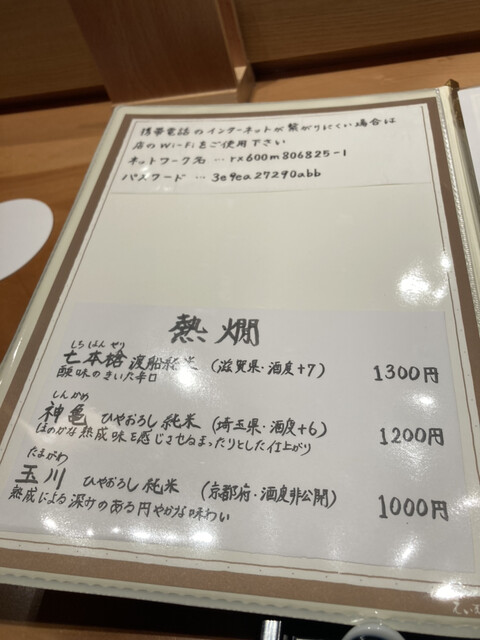 携帯電話のインターネットが繋がりにくい場合は
店のWi-Fiをご使用下さい
ネットワーク名 … rx600m806825-1
パスワード … 3e9ea27290abb
熱燗
しち ほん やり
七本槍 渡船純米 (滋賀県・酒度+7) 1300円
酸味のきいた辛口
しんかめ
神亀 ひやおろし純米 (埼玉県・酒度+6) 1200円
ほのかな熟成味を感じさせるまったりとした仕上がり
たまがわ
玉川 ひやおろし純米 (京都府・酒度非公開) 1000円
熟成による深みのある円やかな味わい